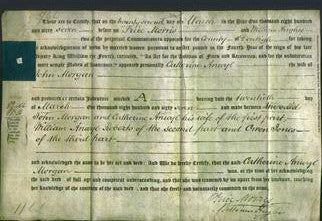 These are to Certify, that on the twenty second day of March in the Year One thousand eight hundred
and sixty seven before us Price Morris and William Hughes
two of the perpetual Commissioners appointed for the County of Denbigh for taking
the acknowledgments of deeds by married women pursuant to an Act passed in the Fourth Year of the reign of his late
Majesty King William the Fourth, intituled, "An Act for the Abolition of Fines and Recoveries, and for the substitution of
more simple Modes of Assurance" appeared personally Catherine Anwyl the wife of
John Morgan
and produced a certain Indenture marked A bearing date the Twentieth
day of March One thousand eight hundred and sixty seven and made between the said
John Morgan and Catherine Anwyl his wife of the first part
William Anwyl of the second part and Owen Jones
of the third part
and acknowledged the same to be her act and deed: And we do hereby Certify, that the said Catherine Anwyl
Morgan was, at the time of her acknowledging
the said deed, of full age and competent understanding, and that she was examined by us apart from her husband, touching
her knowledge of the contents of the said deed, and that she freely and voluntarily consented to the same.
Price Morris